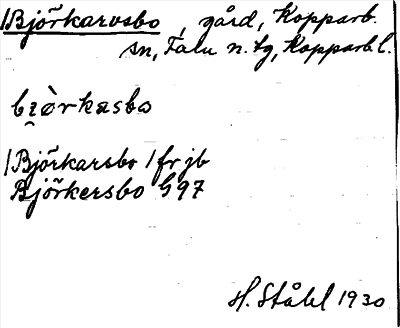 /Björkarvsbo , gård, Kopparb.
sn, Falu n. tg, Kopparb. l.
bi̯òrkasbo
/Björkarsbo / fr jb
Björkersbo G97
H. Ståhl 1930